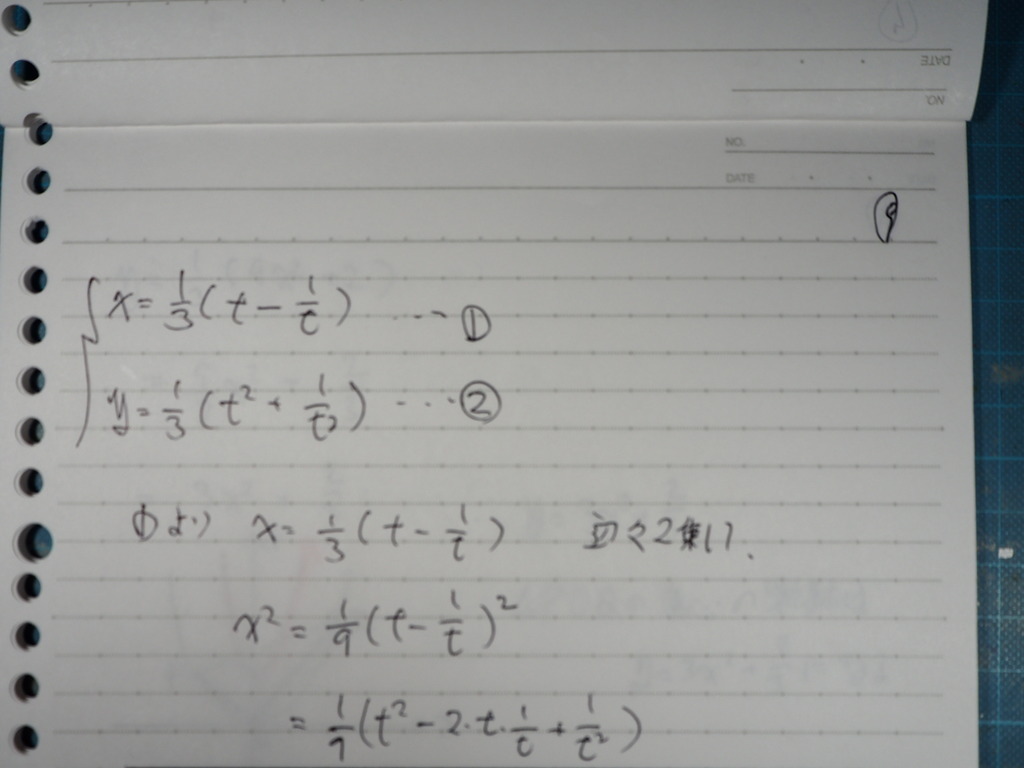 DATE
NO.
NO.
DATE
9
x = 1/3 ( t − 1/t ) ... ①
y = 1/3 ( t² + 1/t² ) ... ②
①より x = 1/3 ( t − 1/t ) 両々2乗し
x² = 1/9 ( t − 1/t )²
= 1/9 ( t² − 2・t・1/t + 1/t² )